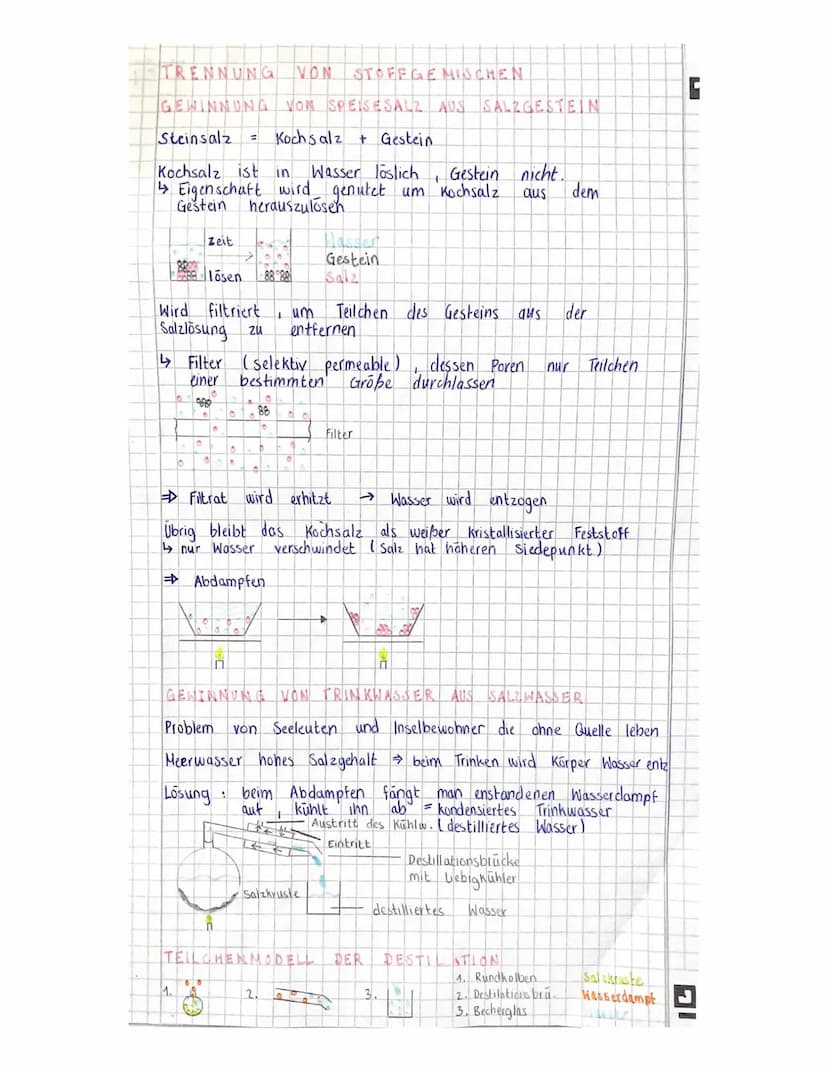 TRENNUNG VON STOFFGEMISCHEN
GEWINNUNG VOM SPEISESALZ AUS SALZGESTEIN
Steinsalz = Kochsalz + Gestein
Kochsalz ist in Wasser löslich, Gestein nicht.
↳ Eigenschaft wird genutzt um Kochsalz aus dem
Gestein herauszulösen
Zeit
lösen
Wasser
Gestein
Salz
Wird filtriert, um Teilchen des Gesteins aus der
Salzlösung zu entfernen
↳ Filter (selektiv permeable), dessen Poren nur Teilchen
einer bestimmten Größe durchlassen
Filter
⇒ Filtrat wird erhitzt → Wasser wird entzogen
Übrig bleibt das Kochsalz als weißer kristallisierter Feststoff
↳ nur Wasser verschwindet (Salz hat höheren Siedepunkt)
⇒ Abdampfen
GEWINNUNG VON TRINKWASSER AUS SALZWASSER
Problem von Seeleuten und Inselbewohner die ohne Quelle leben
Meerwasser hohes Salzgehalt ⇒ beim Trinken wird Körper Wasser entz
Lösung: beim Abdampfen fängt man enstandenen Wasserdampf
auf, kühlt ihn ab = kondensiertes Trinkwasser
Austritt des Kühlw. (destilliertes Wasser)
Eintritt
Destillationsbrücke
mit Liebigkühler
Salzkruste
destilliertes Wasser
TEILCHENMODELL DER DESTILATION
1.
2.
3.
1. Rundkolben
2. Destilationsbrü.
3. Becherglas
Salzkruste
Wasserdampf